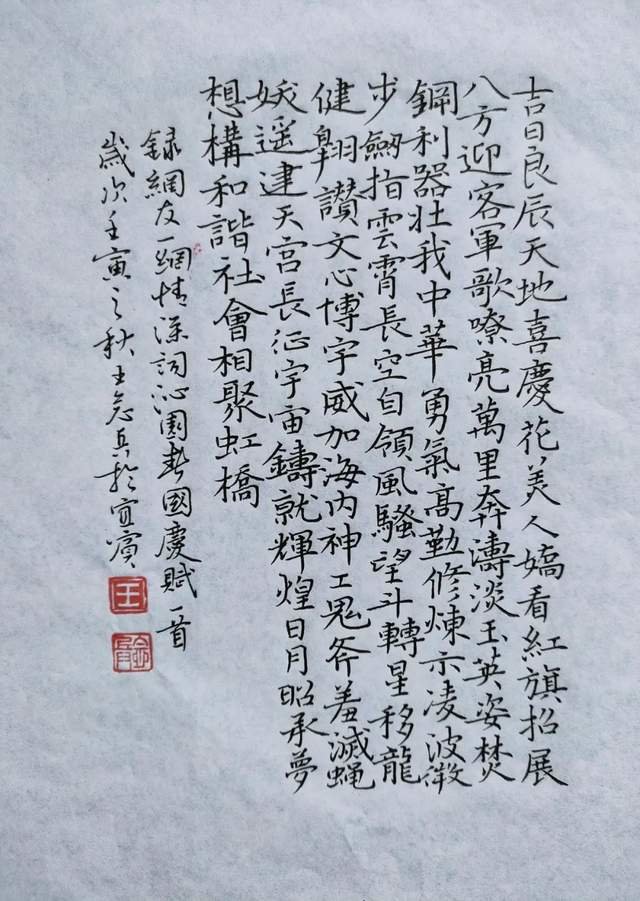 吉日良辰天地喜慶花美人嬌看紅旗招展
八方迎客軍歌嘹亮萬里奔濤淡玉英姿焚
鋼利器壯我中華勇氣高勤修煉示凌波微
步劍指雲霄長空自領風騷望斗轉星移龍
健翱讚文心博宇威加海内神工鬼斧羞滅蝇
妖遥建天宮長征宇宙鑄就輝煌日月昭承夢
想構和諧社會相聚虹橋
錄網友一網情深詞沁園春國慶賦一首
歲次壬寅之秋王於宜賓
王